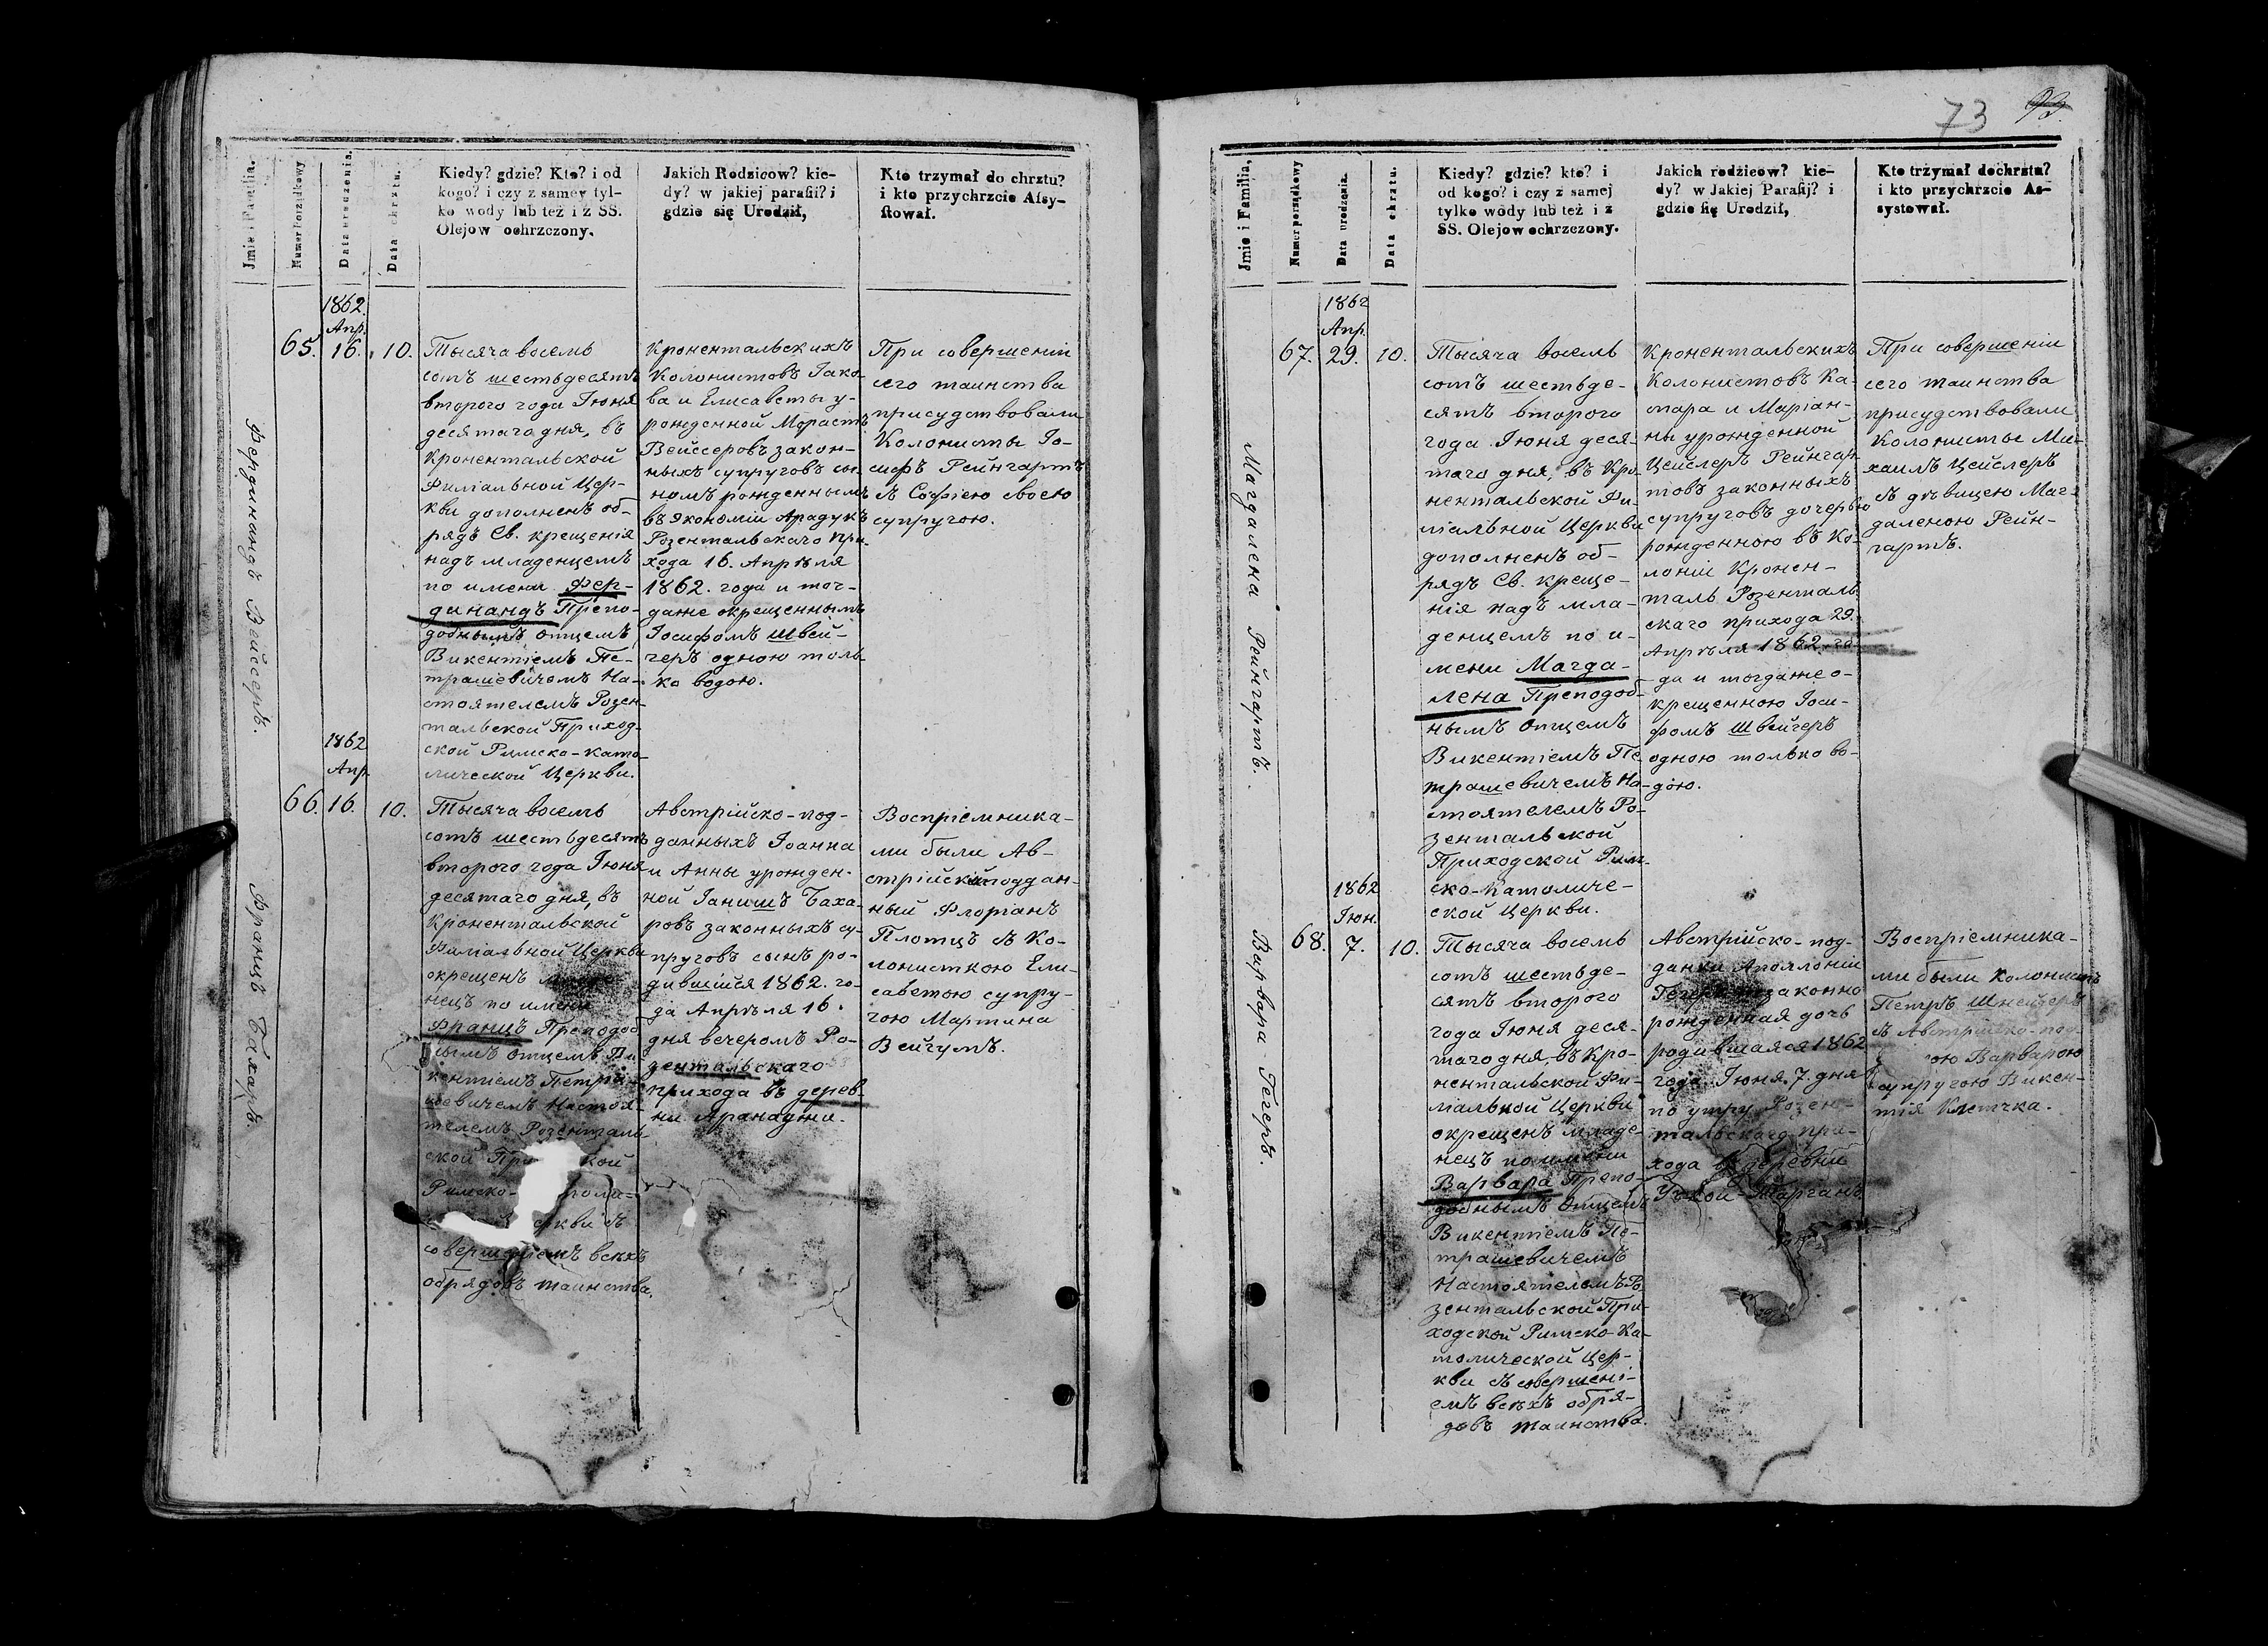 Jmie i Familia.
Numer Porządkowy
Data urodzenia.
Data chrztu.
Kiedy? gdzie? Kto? i od
kogo? i czy z samey tyl-
ko wody lub też i z SS.
Olejow ochrzczony.
Jakich Rodzicow? kie-
dy? w jakiej parafii? i
gdzie się Urodził,
Kto trzymał do chrztu?
i kto przychrzcie Assy-
stował.
Фердинандъ Вейссеръ.
1862.
Апр.
65. 16. 10.
Тысяча восемь
сотъ шестьдесятъ
втораго года Іюня
десятаго дня, въ
Кронентальской
Филіальной Цер-
кви дополненъ об-
рядъ Св. крещенія
надъ младенцемъ
по имени Фер-
динандъ Препо-
добнымъ Отцемъ
Викентіемъ Пе-
трашевичемъ На-
стоятелемъ Розен-
тальской Приход-
ской Римско-като-
лической Церкви.
Кронентальскихъ
Колонистовъ Іако-
ва и Елисаветы у-
рожденной Морастъ
Вейссеровъ закон-
ныхъ супруговъ сы-
номъ рожденнымъ
въ Экономіи Арадукъ
Розентальскаго при-
хода 16. Апрѣля
1862. года и тог-
даже окрещеннымъ
Іосифомъ Швей-
черъ одною толь-
ко водою.
При совершеніи
сего таинства
присудствовали
Колонисты Іо-
сифъ Рейнгартъ
съ Софіею своею
супругою.
Францъ Бахаръ.
1862
Апр.
66. 16. 10.
Тысяча восемь
сотъ шестьдесятъ
втораго года Іюня
десятаго дня, въ
Кронентальской
Филіальной Церкви
окрещенъ младе-
нецъ по имени
Францъ Преподоб
нымъ Отцемъ Ви-
кентіемъ Петра-
шевичемъ Настоя-
телемъ Розенталь
ской
Римско-
совершеніемъ всѣхъ
обрядовъ таинства.
Австрійско-под-
данныхъ Іоанна
и Анны урожден-
ной Іанишъ Баха-
ровъ законныхъ су-
пруговъ сынъ ро-
дившійся 1862. го-
да Апрѣля 16.
дня вечеромъ Ро-
зентальскаго
прихода въ дерев-
ни Аранаджи.
Воспріемника-
ми были Ав-
стрійскій поддан-
ный Флоріанъ
Плотцъ съ Ко-
лонисткою Ели-
саветою супру-
гою Мартина
Вейгумъ.
73
Jmie i Familia.
Numer porządkowy
Data urodzenia.
Data chrztu.
Kiedy? gdzie? kto? i
od kogo? i czy z samej
tylko wódy lub też i z
SS. Olejow ochrzczony.
Jakich rodzicow? kie-
dy? w Jakiej Parafij? i
gdzie się Urodził,
Kto trzymał dochrztu?
i kto przychrzcie As-
systował.
Магдалена Рейнгартъ.
1862
Апр.
67. 29. 10.
Тысяча восемь
сотъ шестьде-
сятъ втораго
года Іюня деся-
таго дня, въ Кро-
нентальской Фи-
ліальной Церкви
дополненъ об-
рядъ Св. креще-
нія надъ мла-
денцемъ по и-
мени Магда-
лена Преподоб-
нымъ Отцемъ
Викентіемъ Пе-
трашевичемъ На-
стоятелемъ Ро-
зентальской
Приходской Рим-
ско-католиче-
ской Церкви.
Кронентальскихъ
Колонистовъ Ка-
спара и Маріан-
ны урожденной
Цейслеръ Рейнгар-
товъ законныхъ
супруговъ дочерью
рожденною въ Ко-
лоніи Кронен-
таль Розенталь-
скаго прихода 29.
Апрѣля 1862 го-
да и тогдаже о-
крещенною Іоси-
фомъ Швейгеръ
одною только во-
дою.
При совершеніи
сего таинства
присудствовали
Колонисты Ми-
хаилъ Цейслеръ
съ дѣвицею Маг-
даленою Рейн-
гартъ.
Варвара Гегеръ.
1862
Іюн.
68. 7. 10.
Тысяча восемь
сотъ шестьде-
сятъ втораго
года Іюня деся-
таго дня, въ Кро-
нентальской Фи-
ліальной Церкви
окрещенъ младе-
нецъ по имени
Варвара Препо-
добнымъ Отцемъ
Викентіемъ Пе-
трашевичемъ
Настоятелемъ Ро-
зентальской При-
ходской Римско-Ка-
толической Цер-
кви съ совершені-
емъ всѣхъ обря-
довъ таинства.
Австрійско-под-
данки Аполлоніи
Гегеръ законно
рожденная дочь
родившаяся 1862
года Іюня 7 дня
по утру Розен-
тальскаго при-
хода въ деревни
Тарганъ
Воспріемника-
ми были Колонистъ
Петръ Шнейдеръ
съ Австрійско-под-
ою Варварою
супругою Викен-
тія Клетчка.